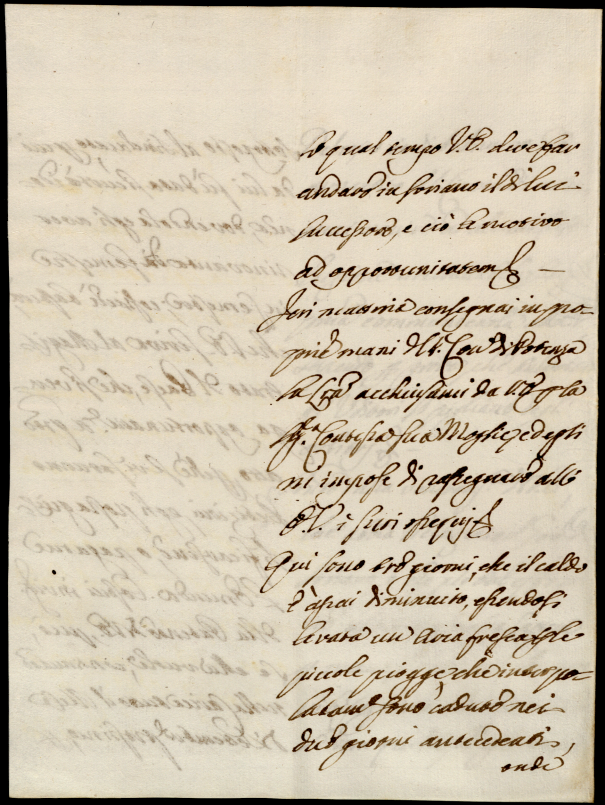 qual tempo V.E. deve far
andare in Soriano il di lui
successore, e ciò le motivo
ad opportunitatem
Jeri mattina consegnai in pro-
prie mani del Sr. Conte di Potenza
la acchiusami da V.E. p la
Sigra Contessa sua Moglie, ed egli
m'impose di rassegnare all'
E.V. i suoi ossequj
Qui sono tre giorni, che il caldo
è assai diminuito, essendosi
levata un aria fresca p le
piccole piogge, che interpo-
latamte sono cadute nei
due giorni antecedenti,
onde